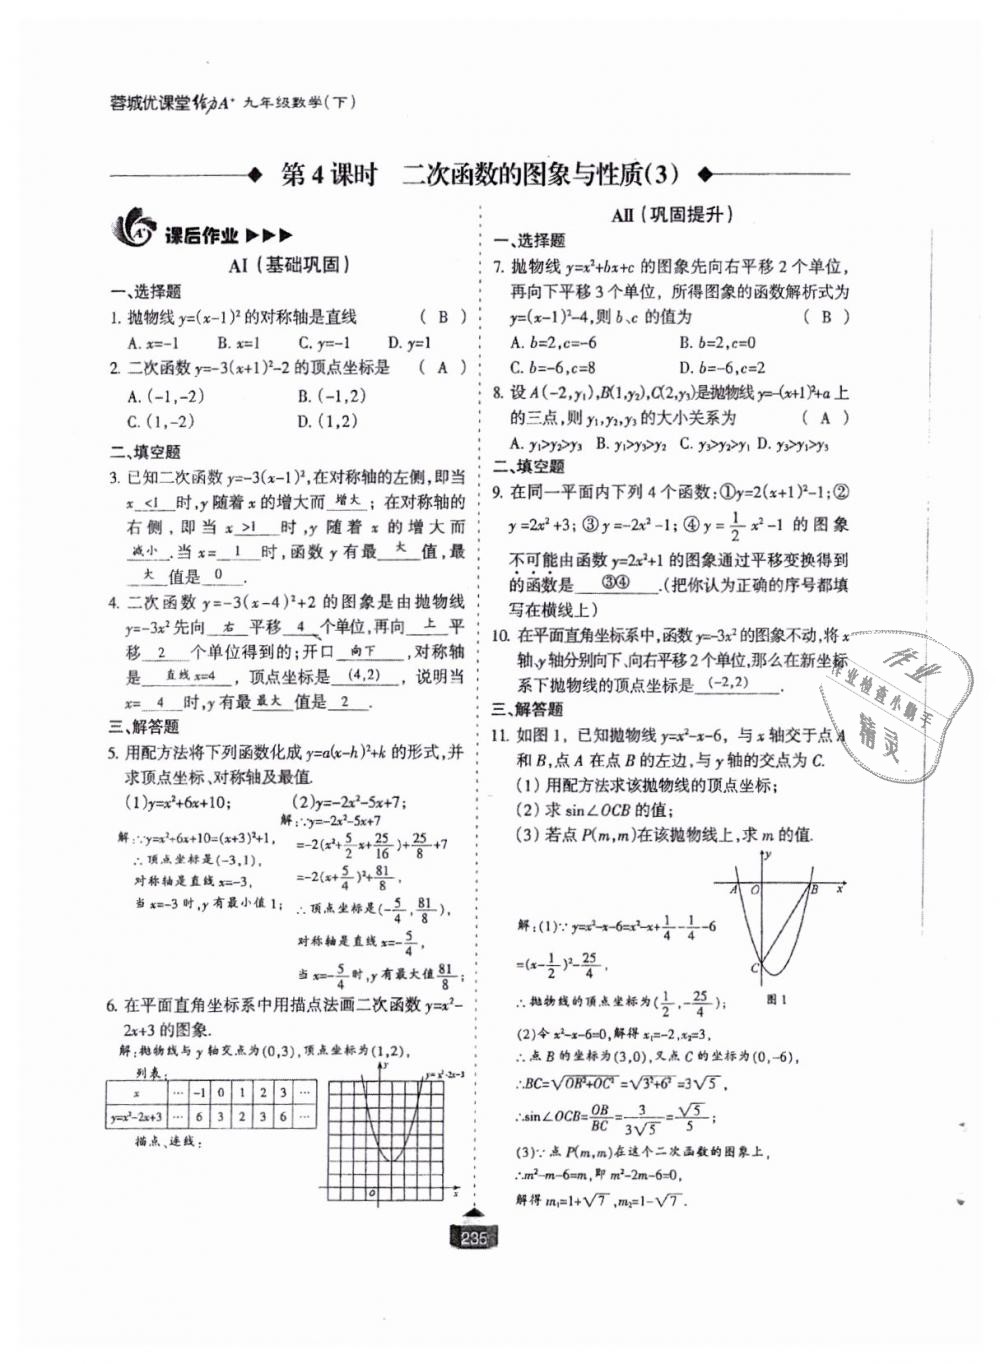 蓉城优课堂给力A⁺ 九年级数学(下)
第4课时 二次函数的图象与性质(3)
课后作业
AⅠ(基础巩固)
一、选择题
1. 抛物线y=(x-1)²的对称轴是直线 ( B )
A. x=-1 B. x=1 C. y=-1 D. y=1
2. 二次函数y=-3(x+1)²-2的顶点坐标是 ( A )
A. (-1,-2) B. (-1,2)
C. (1,-2) D. (1,2)
二、填空题
3. 已知二次函数y=-3(x-1)²,在对称轴的左侧,即当
x <1 时,y随着x的增大而 增大 ; 在对称轴的
右侧,即当x >1 时,y随着x的增大而
减小 .当x= 1 时,函数y有最 大 值,最
大 值是 0 .
4. 二次函数y=-3(x-4)²+2的图象是由抛物线
y=-3x²先向 右 平移 4 个单位,再向 上 平
移 2 个单位得到的;开口 向下 ,对称轴
是 直线x=4 ,顶点坐标是 (4,2) ,说明当
x= 4 时,y有最 最大 值是 2 .
三、解答题
5. 用配方法将下列函数化成y=a(x-h)²+k的形式,并
求顶点坐标、对称轴及最值.
(1)y=x²+6x+10; (2)y=-2x²-5x+7;
解:∵y=x²+6x+10=(x+3)²+1,
∴顶点坐标是(-3,1),
对称轴是直线x=-3,
当x=-3时,y有最小值1;
解:∵y=-2x²-5x+7
=-2(x²+5/2x+25/16)+25/8+7
=-2(x+5/4)²+81/8,
∴顶点坐标是(-5/4,81/8),
对称轴是直线x=-5/4,
当x=-5/4时,y有最大值81/8;
6. 在平面直角坐标系中用描点法画二次函数y=x²-
2x+3的图象.
解:抛物线与y轴交点为(0,3),顶点坐标为(1,2),
列表:
x … -1 0 1 2 3 …
y=x²-2x+3 … 6 3 2 3 6 …
描点、连线:
y
y=x²-2x-3
O
x
AⅡ(巩固提升)
一、选择题
7. 抛物线y=x²+bx+c的图象先向右平移2个单位,
再向下平移3个单位,所得图象的函数解析式为
y=(x-1)²-4,则b、c的值为 ( B )
A. b=2,c=-6 B. b=2,c=0
C. b=-6,c=8 D. b=-6,c=2
8. 设A(-2,y₁),B(1,y₂),C(2,y₃)是抛物线y=-(x+1)²+a上
的三点,则y₁,y₂,y₃的大小关系为 ( A )
A. y₁>y₂>y₃ B. y₁>y₃>y₂ C. y₃>y₂>y₁ D. y₃>y₁>y₃
二、填空题
9. 在同一平面内下列4个函数:①y=2(x+1)²-1;②
y=2x²+3; ③y=-2x²-1; ④y=1/2x²-1的图象
不可能由函数y=2x²+1的图象通过平移变换得到
的函数是 ③④ .(把你认为正确的序号都填
写在横线上)
10. 在平面直角坐标系中,函数y=-3x²的图象不动,将x
轴、y轴分别向下、向右平移2个单位,那么在新坐标
系下抛物线的顶点坐标是 (-2,2) .
三、解答题
11. 如图1,已知抛物线y=x²-x-6,与x轴交于点A
和B,点A在点B的左边,与y轴的交点为C.
(1) 用配方法求该抛物线的顶点坐标;
(2) 求sin∠OCB的值;
(3) 若点P(m,m)在该抛物线上,求m的值.
y
A O B x
C
图1
解:(1)∵y=x²-x-6=x²-x+1/4-1/4-6
=(x-1/2)²-25/4,
∴抛物线的顶点坐标为(1/2,-25/4);
(2)令x²-x-6=0,解得x₁=-2,x₂=3,
∴点B的坐标为(3,0),又点C的坐标为(0,-6),
∴BC=√(OB²+OC²)=√(3²+6²)=3√5,
∴sin∠OCB=OB/BC=3/(3√5)=√5/5;
(3)∵点P(m,m)在这个二次函数的图象上,
∴m²-m-6=m,即m²-2m-6=0,
解得m₁=1+√7,m₂=1-√7.
作业
作业检查小帮手
精灵
235